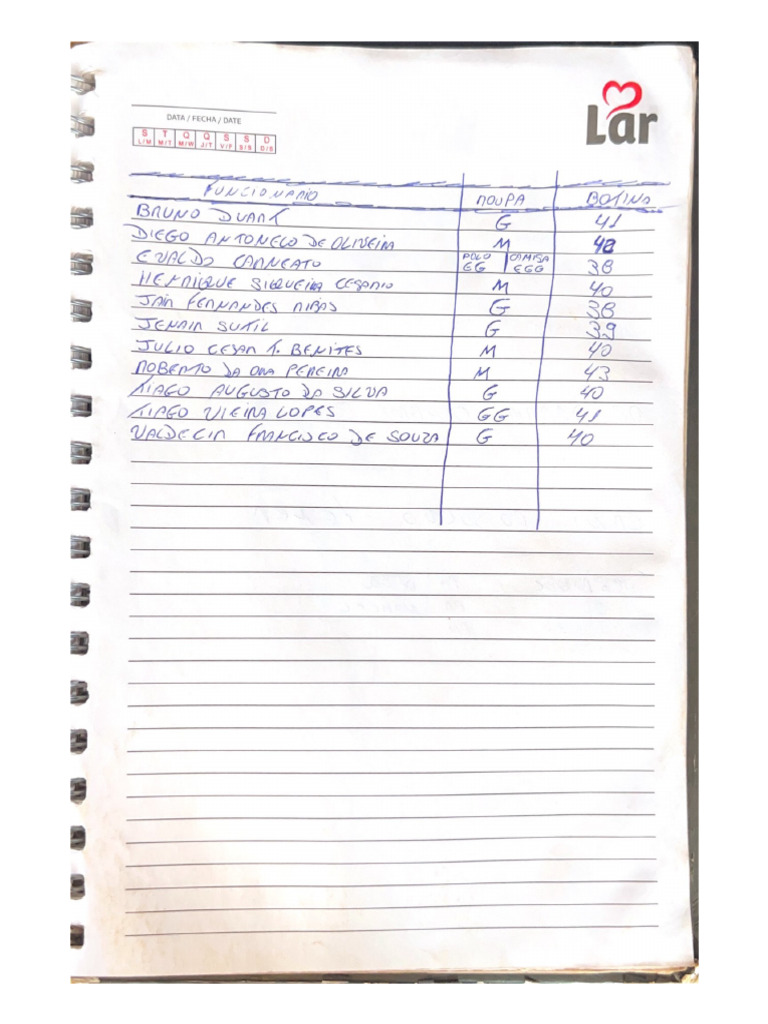 Lar
DATA / FECHA / DATE
S T Q Q S S D
L/M M/T M/W J/T V/F S/S D/S
FUNCIONARIO ROUPA BOTINA
BRUNO DUART G 41
DIEGO ANTONELO DE OLIVEIRA M 42
EVALDO CARNEATO POLO EG CAMISA EGG 38
HENRIQUE SIEQUEIRA CESARIO M 40
JAIR FERNANDES RIBAS G 38
JENAIR SUTIL G 39
JULIO CESAR T. BENITES M 40
ROBERTO DA PEREIRA M 43
TIAGO AUGUSTO DA SILVA G 40
TIAGO VIEIRA LOPES GG 41
VALDECIR FRANCISCO DE SOUZA G 40